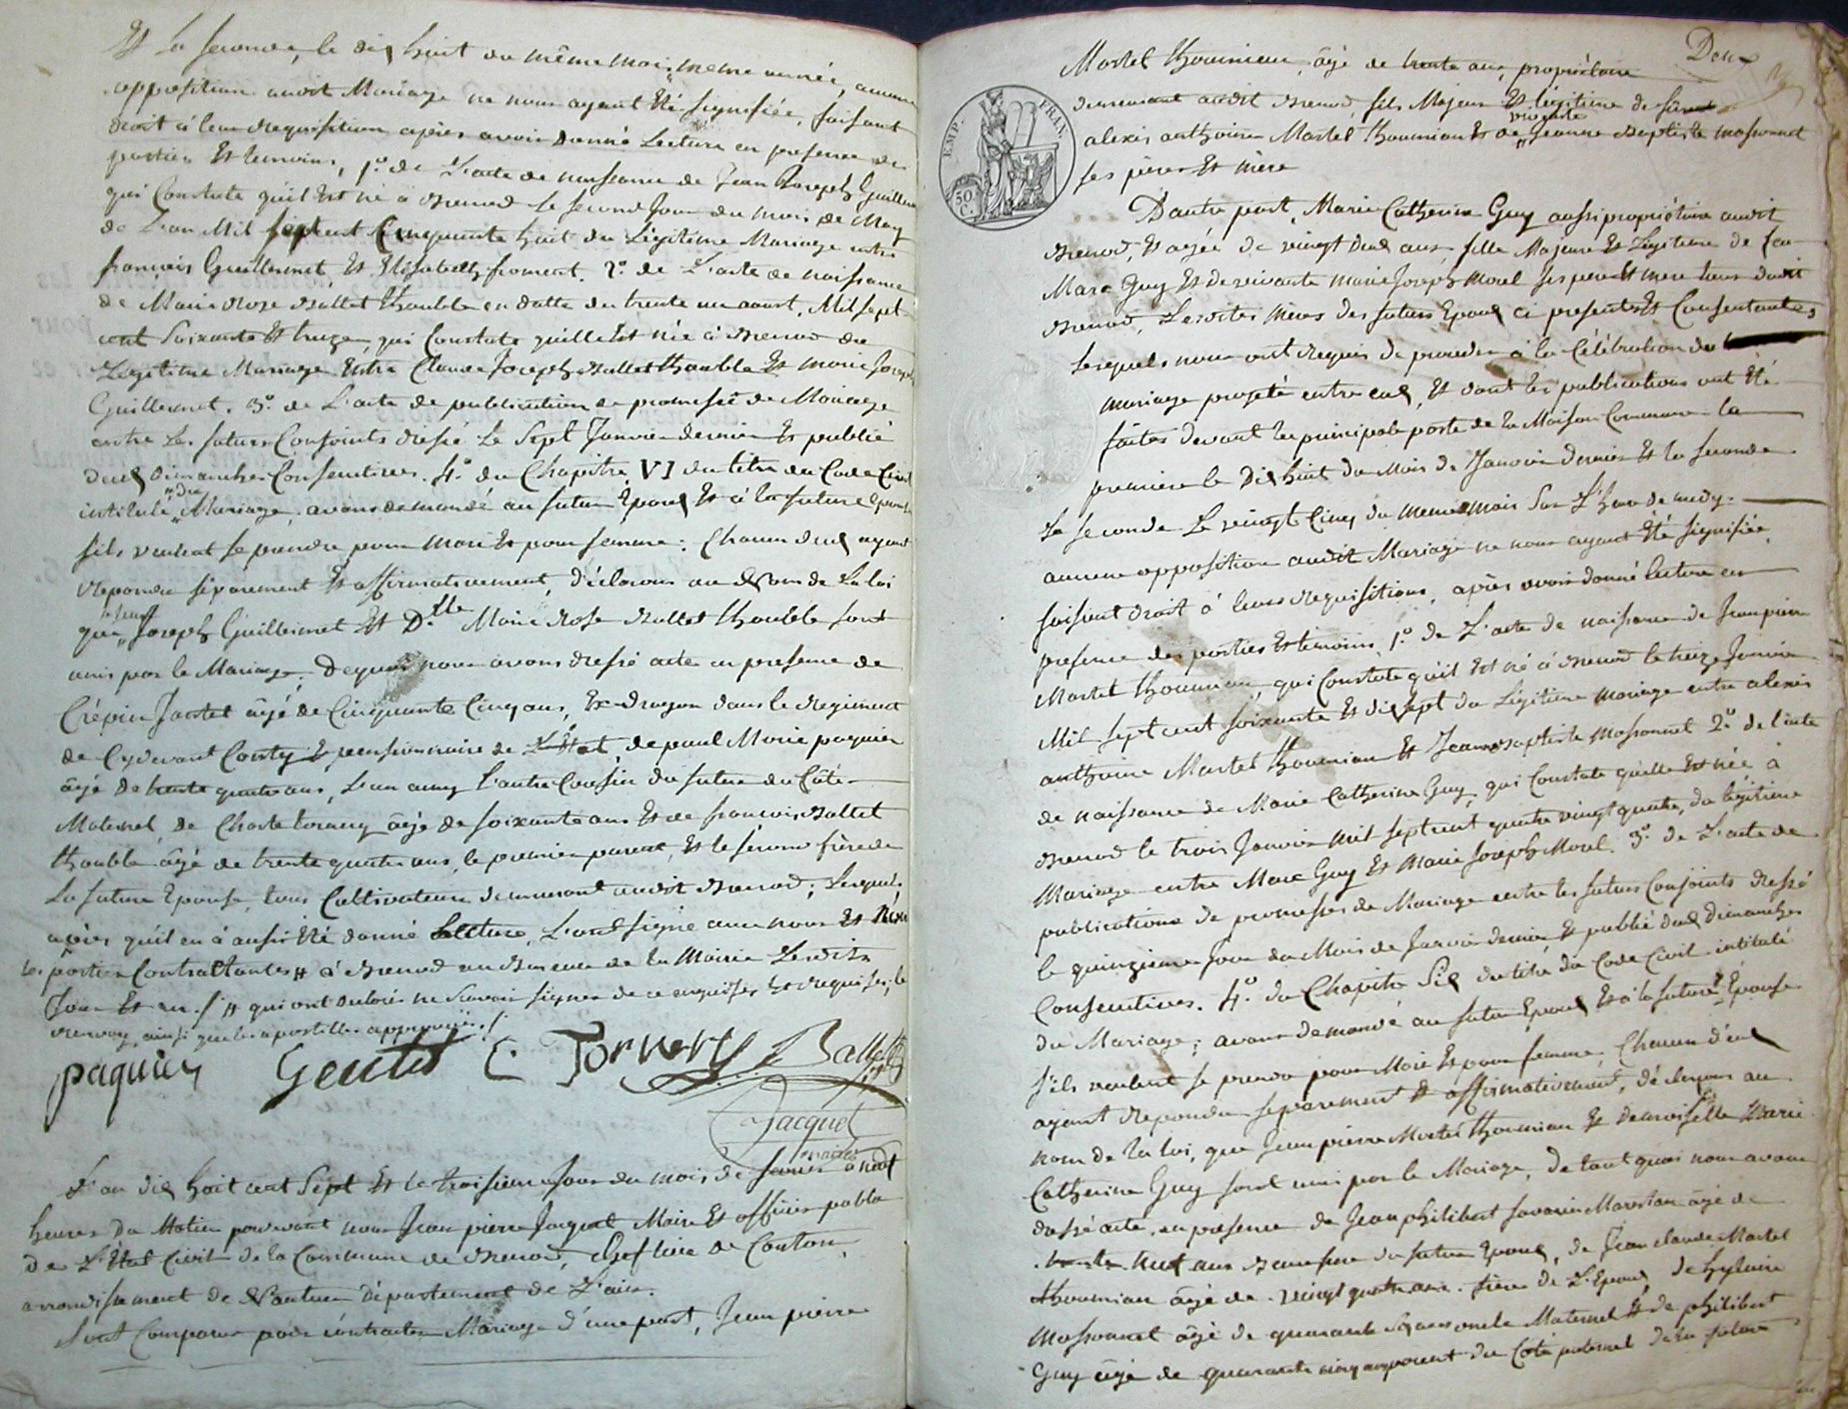 Et la seconde, le dix huit du même mois, meme année, aucune
opposition audit Mariage ne nous ayant été signifiée, faisant
droit à leur requisition après avoir donné Lecture en presence des
parties Et temoins, 1.° de L'acte de naissance de Jean Joseph Guillermet
qui Constate qu'il Est né à Brenod le second Jour du mois de May
de L'an Mil sept cent Cinquante huit du Légitime Mariage entre
françois Guillermet Et Elisabeth froment. 2.° de L'acte de naissance
de Marie Rose Ballet Thouble en datte du trente un aoust, Mil sept
cent soixante Et treize, qui Constate qu'elle Est née à Brenod du
Légitime Mariage Entre Claude Joseph Ballet Thouble Et Marie Joseph
Guillermet. 3.° de L'acte de publication de promesse de Mariage
entre les futurs Conjoints dressé le Sept Janvier dernier Et publié
deux dimanches Consecutives. 4.° du Chapitre VI du titre du Code Civil
intitulé du Mariage, avons demandé au futur Epoux Et à la future Epouse
s'ils veulent se prendre pour Mari Et pour femme: Chacun d'eux ayant
repondu séparement Et affirmativement, déclarons au Nom de La loi
que Jean Joseph Guillermet Et D.lle Marie Rose Ballet Thouble sont
unis par le Mariage. Dequoi nous avons dressé acte en presence de
Crépin Jantet âgé de Cinquante Cinq ans, Ex-dragon dans le Regiment
de Cydevant Conty Et pensionnaire de L'Etat, de paul Marie paquier
âgé de trente quatre ans, L'un amy l'autre Cousin du futur du Côté
Maternel, de Charle tornery âgé de soixante ans Et de francois Ballet
Thouble âgé de trente quatre ans, le premier parent, Et le sécond frère de
La future Epouse, tous Cultivateurs demeurant audit Brenod; Lesquels
après qu'il en à aussi été donné Lecture, L'ont signé avec nous Et Non
les parties Contractantes # à Brenod au Bureau de la Mairie Lesdits
Jour Et an ./. # qui ont declaré ne Scavoir signer de ce enquises Et requises; le
renvoy, ainsi que les apostilles approuvés ./.
paquier Gentet C Tornery Ballet
Jacquet
maire
L'an dix huit cent Sept Et le troisieme Jour du mois de fevrier à neuf
heures du Matin pardevant nous Jean pierre Jacquet Maire Et officier public
de L'Etat Civil de la Commune de Brenod, chef lieu de Canton,
arrondissement de Nantua département de L'ain.
Sont Comparus pour contracter Mariage d'une part, Jean pierre
Deux
Martel Thoumian, âgé de trente ans, propriétaire
demeurant audit Brenod, fils Majeur Et légitime de feu
EMP. FRAN.
50 C.
alexis anthoine Martel Thoumian Et de vivante Jeanne Baptiste massonnet
ses pères Et mère
D'autre part, Marie Catherine Guy aussi propriétaire audit
Brenod, Et agée de vingt deux ans, fille Majeure Et Légitime de feu
Marc Guy Et de vivante marie Joseph Morel ses pere Et mere tous dudit
Brenod, Lesdites Mères des futurs Epoux ci presentes Et Consentantes
Lesquels nous ont requis de proceder à la Célébration du
mariage projeté entre eux, Et dont les publications ont été
faites devant la principale porte de la Maison Commune la
premiere le Dix huit du Mois de Janvier dernier Et la seconde
La seconde Le vingt Cinq du meme mois Sur L'heure de midy.
aucune opposition audit Mariage ne nous ayant été signifiée,
faisant droit à leurs requisitions, après avoir donné lecture en
presence des parties Et temoins, 1.° de L'acte de naissance de Jean pierre
Martel Thoumian, qui Constate qu'il Est né à Brenod le treize Janvier
Mil sept cent soixante Et dix sept du Légitime mariage entre alexis
anthoine Martel Thoumian Et Jeanne Baptiste Massonnet 2.° de l'acte
de naissance de Marie Catherine Guy, qui Constate qu'elle Est née à
Brenod le trois Janvier mil sept cent quatre vingt quatre, du légitime
Mariage entre Marc Guy Et Marie Joseph Morel. 3.° de L'acte de
publications de promesses de Mariage entre les futurs Conjoints dressé
le quinzieme Jour du Mois de Janvier dernier, Et publié deux dimanches
Consecutives. 4.° du Chapitre Six du titre du Code Civil intitulé
du Mariage; avons demandé au futur Epoux Et à la future Epouse
s'ils veulent se prendre pour Mari Et pour femme, Chacun d'eux
ayant repondu separement Et affirmativement, déclarons au
nom de la loi, que Jean pierre Martel Thoumian Et demoiselle Marie
Catherine Guy sont unis par le Mariage, de tout quoi nous avons
dressé acte, en presence de Jean philibert Savarin Marestan âgé de
neuf ans Beaufrere du futur Epoux, de Jean claude Martel
Thoumian âgé de vingt quatre ans frère de L'Epoux, de hylaire
Massonnet âgé de quarante Six ans oncle Maternel Et de philibert
Guy âgé de quarante cinq ans parent du Côté paternel de la future